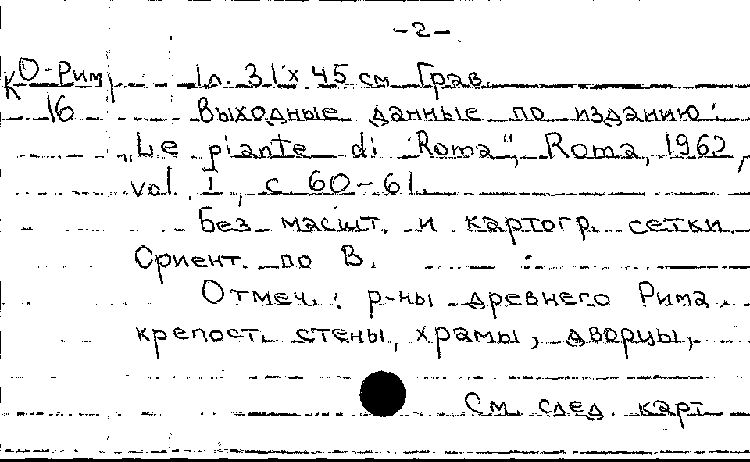 -2-
К О-Рим 1л. 31х45 см Грав.
16 Выходные данные по изданию:
"Le piante di Roma", Roma, 1962,
vol. I, с 60-61.
Без масшт. и картогр. сетки
Ориент. по В.
Отмеч.: р-ны древнего Рима,
крепост. стены, храмы, дворцы,
См. след. карт